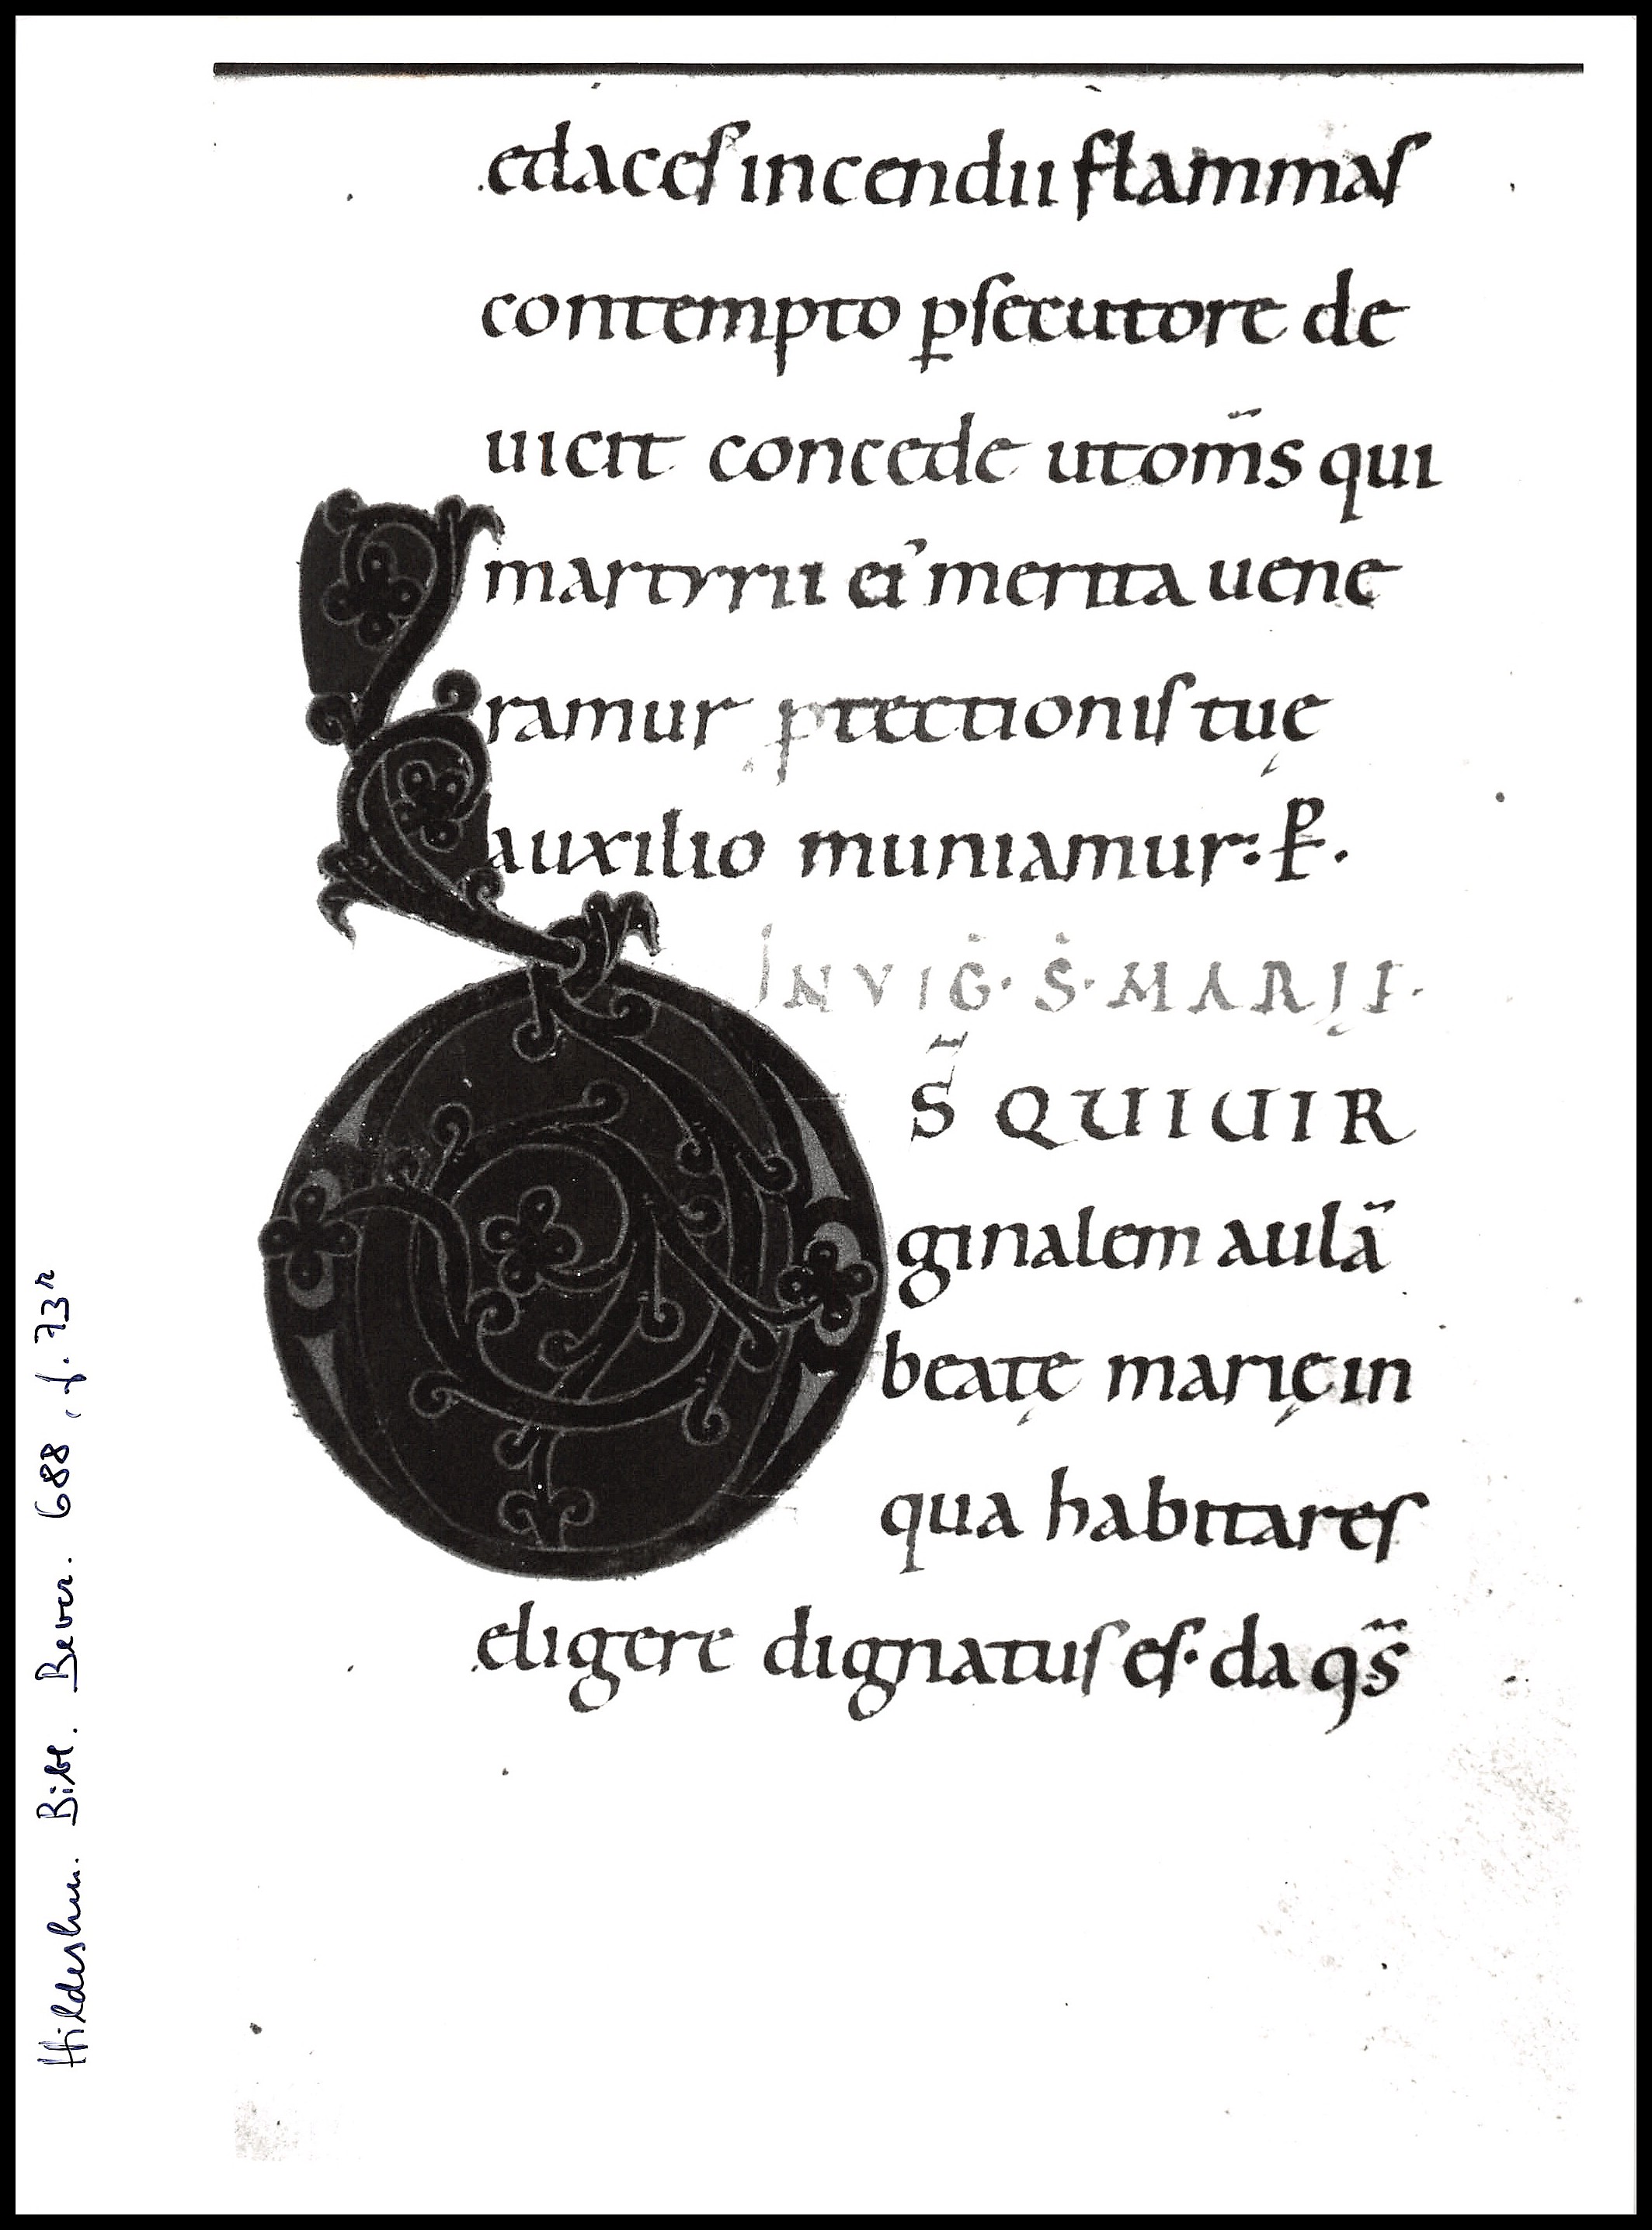 edaces incendii flammas
contempto ꝑsecutore de
uicit concede ut om̄s qui
martyrii ei' merita uene
ramur ꝓtectionis tuę
auxilio muniamur: P̵.
IN VIG̅. S̅. MARIĘ.
D̅S̅ QUI UIR
ginalem aulā
beatę marię in
qua habitares
eligere dignatus es. da qs̄
Hildeshm. Bibl. Bever. 688, f. 73r